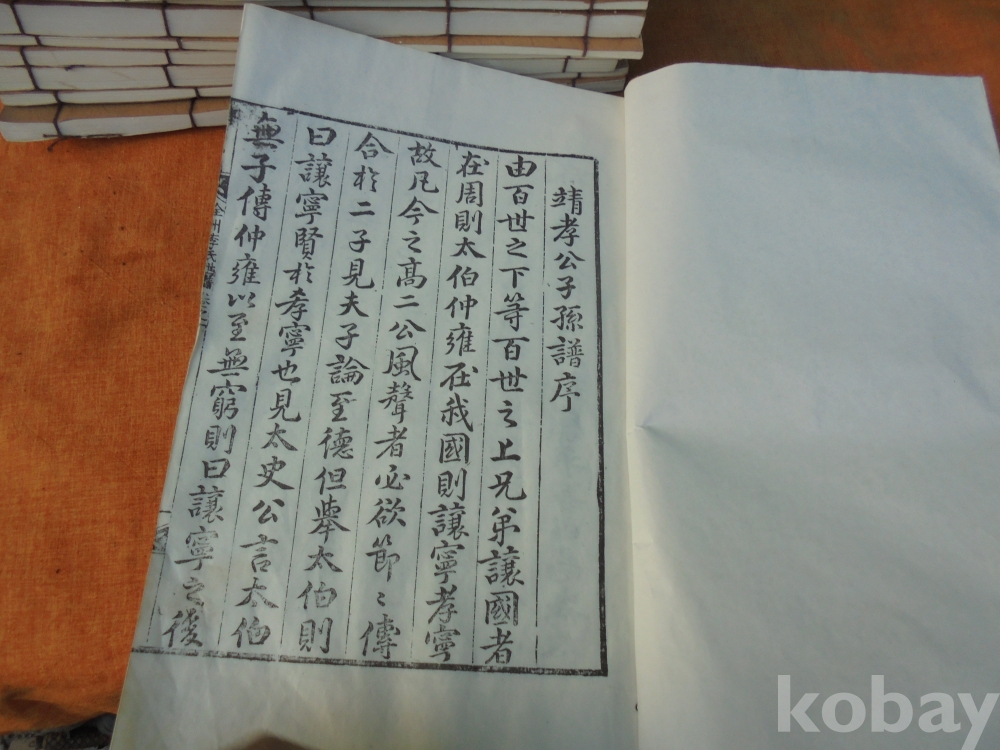 靖孝公子孫譜序
由百世之下等百世之上兄弟讓國者
在周則太伯仲雍在我國則讓寧孝寧
故凡今之高二公風聲者必欲節〻傳
合於二子見夫子論至德但擧太伯則
曰讓寧賢於孝寧也見太史公言太伯
無子傳仲雍以至無窮則曰讓寧之後
全州李氏族譜
kobay